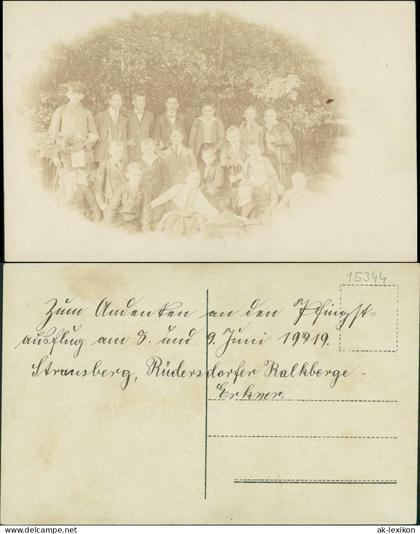 15344
Zum Andenken an den Pfingst-
ausflug am 8. und 9. Juni 1919.
Strausberg, Rüdersdorfer Kalkberge -
Erkner.
ak-lexikon
ak-lexikon.com